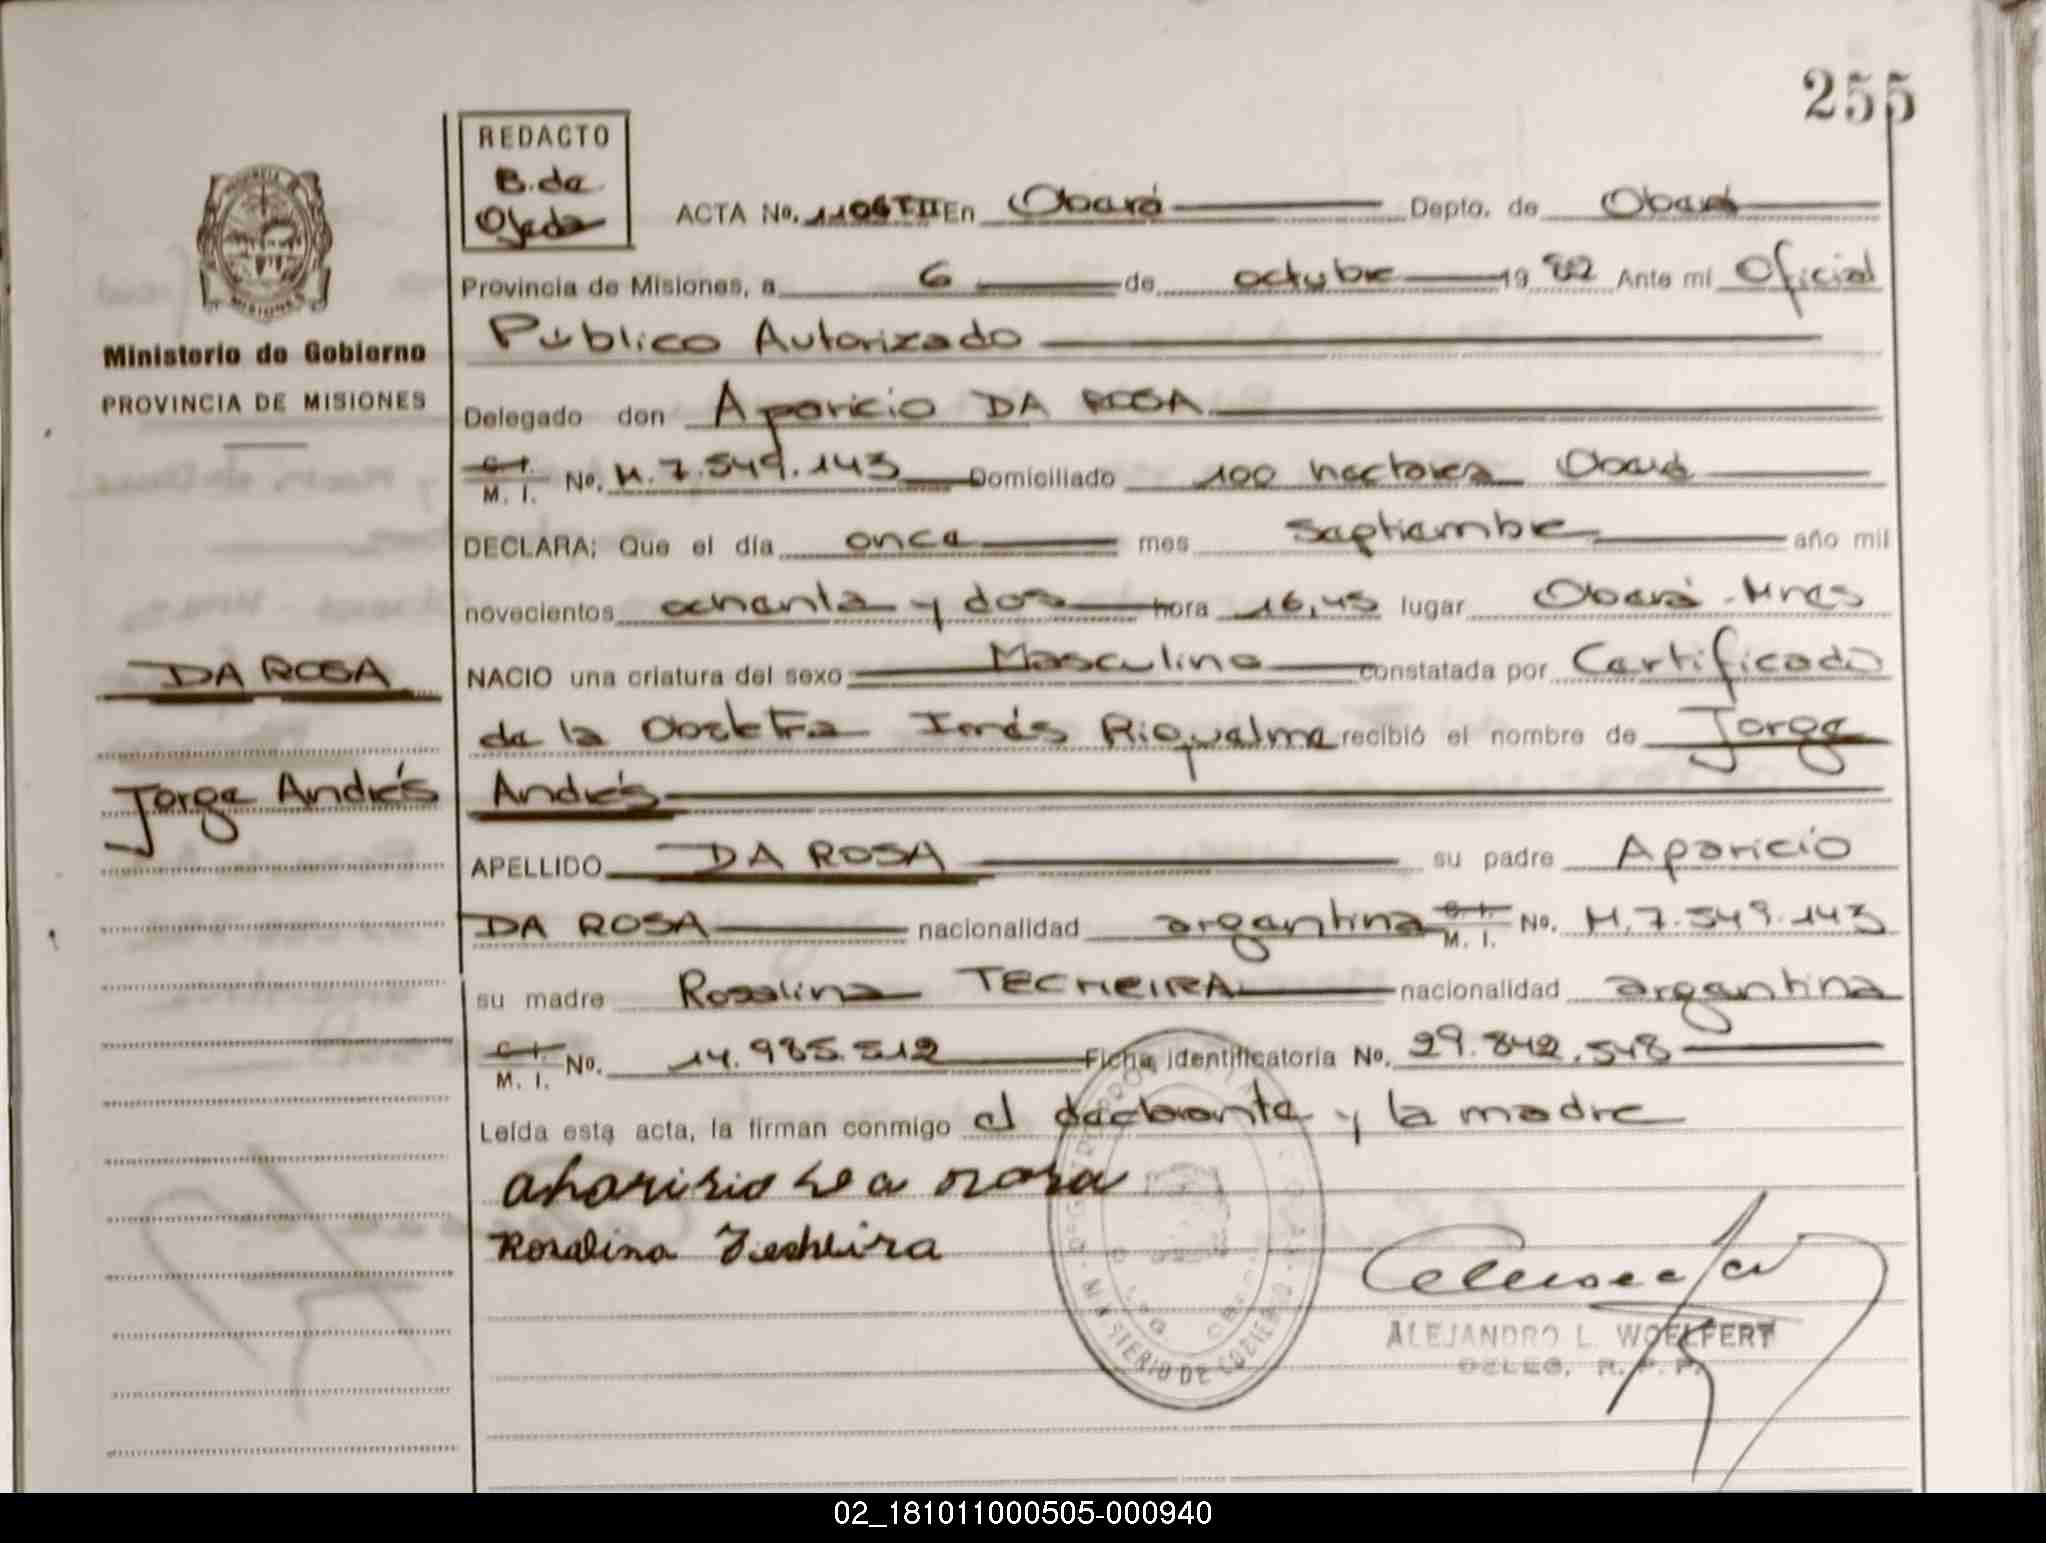 255
REDACTO
B. de
Ojeda
ACTA No. 1106TII En Oberá Depto. de Oberá
Provincia de Misiones, a 6 de octubre 1982 Ante mi Oficial
Público Autorizado
Ministerio de Gobierno
PROVINCIA DE MISIONES
Delegado don Aparicio DA ROSA
C. I.
M. I. No. M. 7.549.143 Domiciliado 100 hectarea Oberá
DECLARA; Que el día once mes septiembre año mil
novecientos ochenta y dos hora 16,45 lugar Oberá - Mnes
DA ROSA
NACIO una criatura del sexo Masculino constatada por Certificado
de la Obstetra Inés Riquelme recibió el nombre de Jorge
Jorge Andrés
Andrés
APELLIDO DA ROSA su padre Aparicio
DA ROSA nacionalidad argentina C. I. M. I. No. M. 7.549.143
su madre Rosalina TECHEIRA nacionalidad argentina
C. I.
M. I. No. 14.985.512 Ficha identificatoria No. 29.842.548
Leída esta acta, la firman conmigo el declarante y la madre
Rosalina Techeira
MINISTERIO DE GOBIERNO
ALEJANDRO L. WOELFERT
DELEG. R. P. P.
02_181011000505-000940